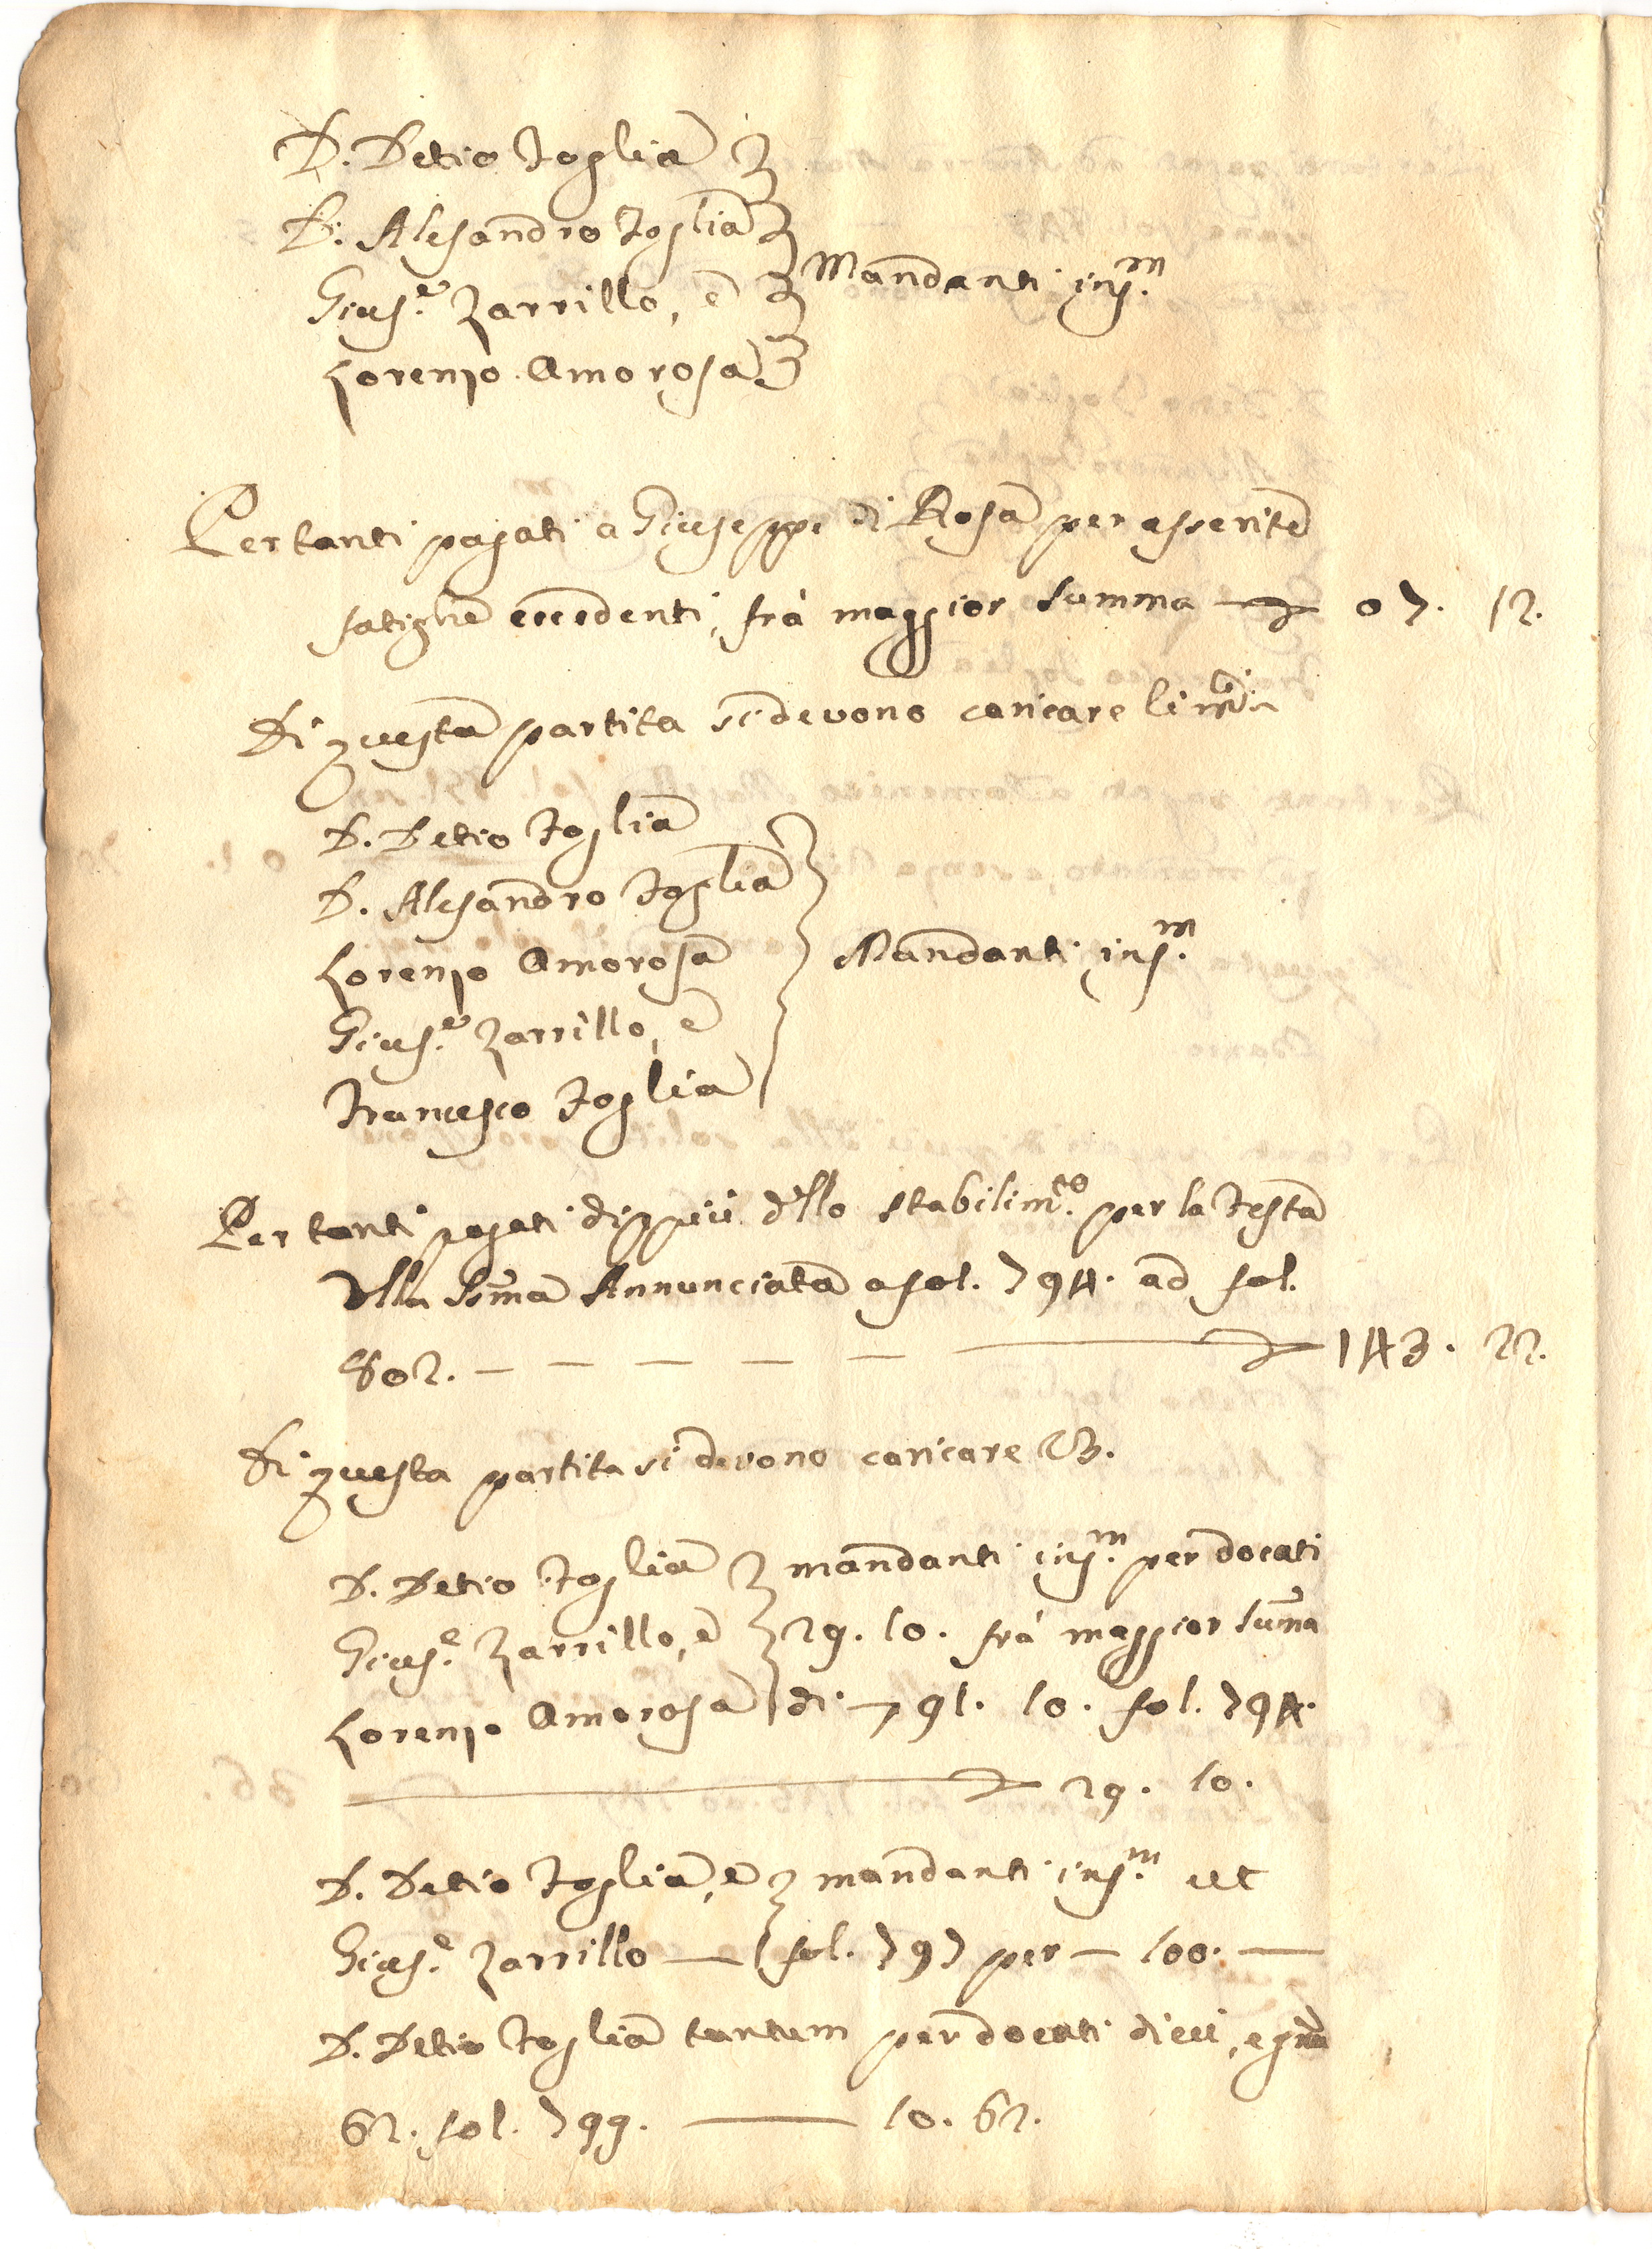 D. Detio Foglia
D. Alesandro Foglia
Gius.e Zarrillo, e
Mandanti ins.m
Lorenzo Amorosa
Per tanti pagati a Giuseppe di Rosa per asserite
fatighe eccedenti, frà maggior summa 07. 12.
Di questa partita si devono caricare li
D. Detio Foglia
D. Alesandro Foglia
Lorenzo Amorosa
Mandanti ins.m
Gius.e Zarrillo, e
Francesco Foglia
Per tanti pagati di più dello stabilim.to per la festa
della SS.ma Annunciata a fol. 794. ad fol.
802. — — — — — 143. 22.
Di questa partita si devono caricare
D. Detio Foglia mandanti ins.m per docati
Gius.e Zarrillo, e 29. 10. frà maggior suma
Lorenzo Amorosa di — 91. 10. fol. 794.
29. 10.
D. Detio Foglia, e mandanti ins.m ut
Gius.e Zarrillo — fol. 797 per — 100. —
D. Detio Foglia tantum per docati dieci, e gna
62. fol. 799. — 10. 62.